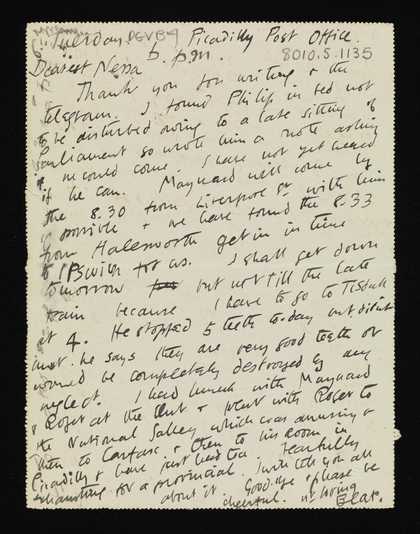 Tuesday. DGVB4 Picadilly Post Office.
6. p.m. 8010.5.1135
Dearest Nessa
Thank you for writing & the
telegram. I found Philip in bed not
to be disturbed owing to a late sitting of
Parliament so wrote him a note asking
if he could come. I have not yet heard
if he can. Maynard will come by
the 8.30 from Liverpool St with him
if possible & we have found the 8.33
from Halesworth gets in in time
to Ipswich for us. I shall get down
tomorrow but not till the late
train because I have to go to
at 4. He stopped 5 teeth to-day but didn't
hurt. he says they are very good teeth or
would be completely destroyed by any
neglect. I had lunch with Maynard
& Roger at the & went with Roger to
the National Gallery which was amusing &
then to Carfax & then to his room in
Picadilly & have just had tea. Fearfully
exhausting for a provincial. I will tell you all
about it. Good-bye & please be
cheerful. yr loving
Bear.